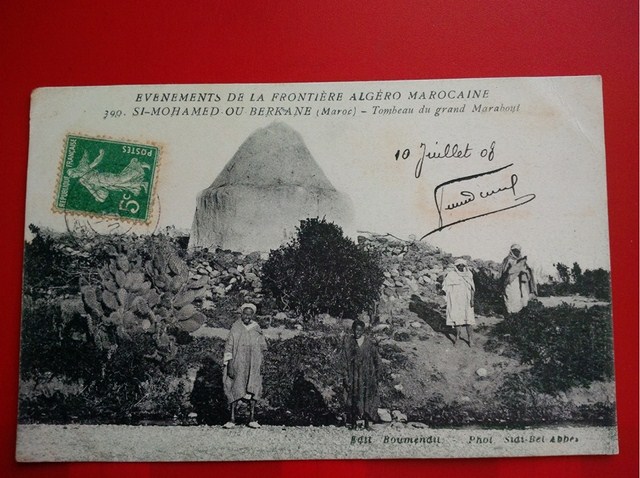 EVENEMENTS DE LA FRONTIÈRE ALGÉRO MAROCAINE
390. SI-MOHAMED-OU-BERKANE (Maroc) – Tombeau du grand Marabout
10 Juillet 08
REPUBLIQUE FRANÇAISE
POSTES
5c
Edit Boumendil - Phot Sidi-Bel-Abbes